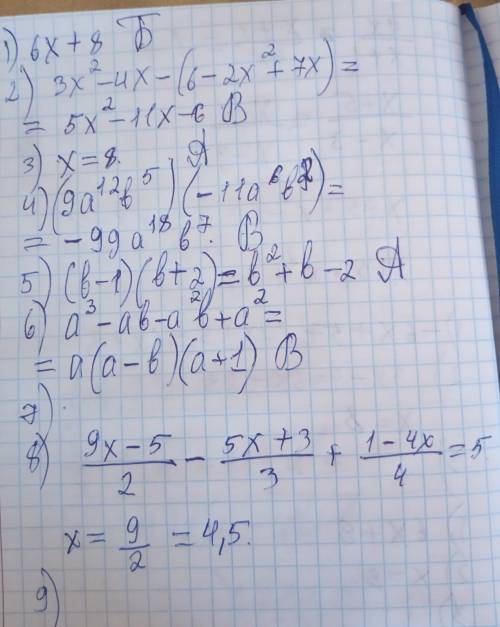 1) 6x+8 Б
2) 3x²-4x-(6-2x²+7x)=
= 5x²-11x-6 В
3) x=8. А
4) (9a¹²b⁵)(-11a⁶b²)=
= -99a¹⁸b⁷. В
5) (b-1)(b+2)=b²+b-2 А
6) a³-ab-a²b+a²=
= a(a-b)(a+1) В
7)
8) (9x-5)/2 - (5x+3)/3 + (1-4x)/4 = 5
x = 9/2 = 4,5.
9)